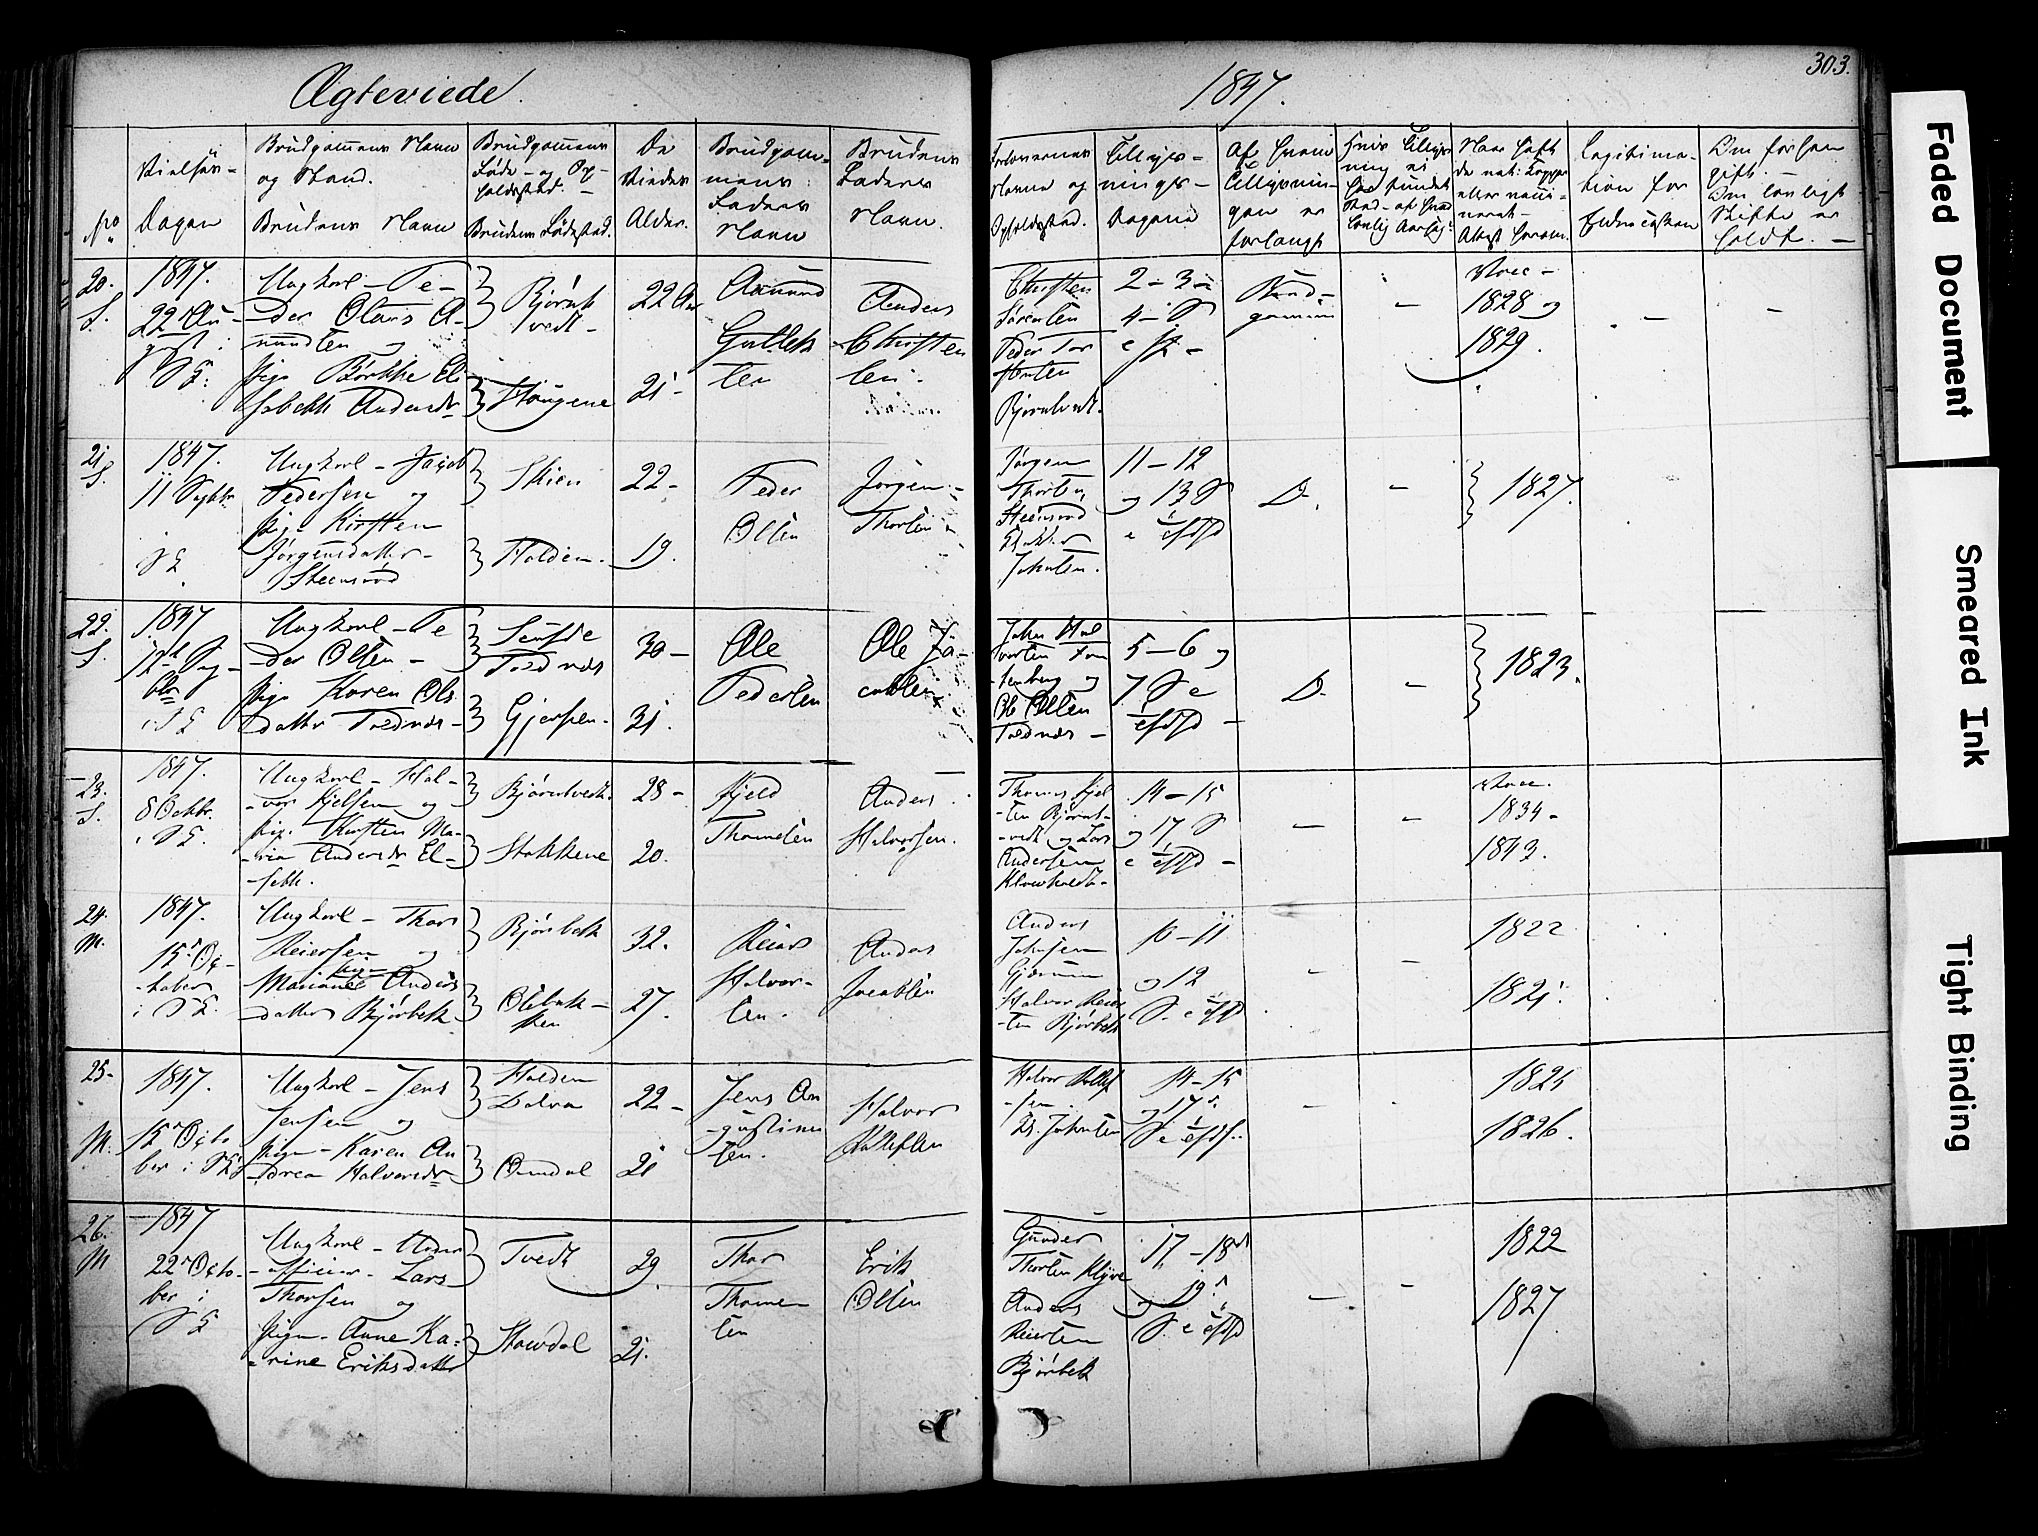 Ægteviede.
1847.
303.
No
Vielses-
Dagen
Brudgommens Navn
og Stand.
Brudens Navn
Brudgommens
Føde- og Op-
holdssted. -
Brudens Fødested.
De
Viedes
Alder.
Brudgom-
mens
Faders
Navn
Brudens
Faders
Navn.
Forlovernes
Navne og
Opholdssted.
Tillys-
nings-
Dagene
Af hvem
Tillysnin-
gen er
forlangt
Naar havt
de nat: Kopper
eller vacci-
neret.
Legitima-
tion for
Enkno
Om forhen
gift.
Om lovligt
Skifte er
holdt. -
20.
S.
1847.
22 Au-
gust i
S E:
Ungkarl - Pe-
der Olaus A-
mundsen og
Pige Børthe Eli
sabeth Andersdr
Bjørnt
vedt -
Haugene
22 Aar
21 -
Aamund
Gullek
sen
Anders
Christen
sen.
Christen
Sørensen
Peder Tor
stensen
Bjørntvedt.
2 - 3 -
4 - S
e St -
Brud-
gommen
-
Vacc -
1828 og
1829.
-
-
21.
S.
1847.
11 Septbr
S E
Ungkarl - Jacob
Pedersen og
Pige Kirsten
Jørgensdatter -
Steensrød
Skien
Solden.
22 -
19.
Peder
Olsen
Jørgen -
Thorsen -
Jørgen
Thorsen
Steensrød
Johnsen.
11 - 12
og 13 S
D.
-
1827.
22.
S.
1847
12 Sep-
tbr
i S E
Ungkarl - Pe
der Olsen -
Pige Karen Ols
datter Tvednæs -
Tvednæs
Gjerpen.
30 -
31.
Ole
Pedersen
Ole Ja-
cobsen
John Hal
vorsen
Ole Olsen
Tvednæs -
5 - 6 og
7 S e
D.
-
1823.
23.
S.
1847.
8 Octbr.
i S E.
Ungkarl - Hal-
vor Kjelsen og
Pig. Kirsten Ma-
ria Andersdr El-
sebth.
Bjørntvedt.
Stokkene
28 -
20.
Kjeld
Thommesen
Anders
Halvorsen.
Thomes Kjel-
sen Bjørnt-
vedt og Lars
Andersen
14 - 15
og 17 S
-
-
Vacc.
1834 -
1843.
24.
M.
1847.
15 Oc-
tober
i S E.
Ungkarl - Thor
Reiersen og
Pigen
Mariane Anders
datter Bjørbek
Bjørbek
Olsbak-
ken
32.
27.
Reier
Halvor-
sen.
Anders
Jacobsen
Anders
Johnsen
Gjerum
Halvor Reier
sen Bjørbek
10 - 11
og 12
-
-
1822
1821.
25 -
M.
1847.
15 Octo
ber i S E
Ungkarl - Jens
Jensen og
Pige - Karen An
drea Halvorsdr
Solden
Dalva
Omdal
22 -
21
Jens Au
gustinu
sen.
Halvor
Rollefsen
Halvor Rollef
sen.
Johnsen
14 - 15
og 17
-
-
1825
1826.
26.
M
1847
22 Octo-
ber i
S E
Ungkarl - Under
officier - Lars
Thorsen og
Pige - Anne Ka-
rine Eriksdatter
Tvedt
29
21.
Thor
Thomme-
sen
Erik
Olsen
Gunder
Thorsen Klyve
Anders
Reiersen
Bjørbek
17 - 18
og 19
-
-
1822
1827
Faded Document
Smeared Ink
Tight Binding